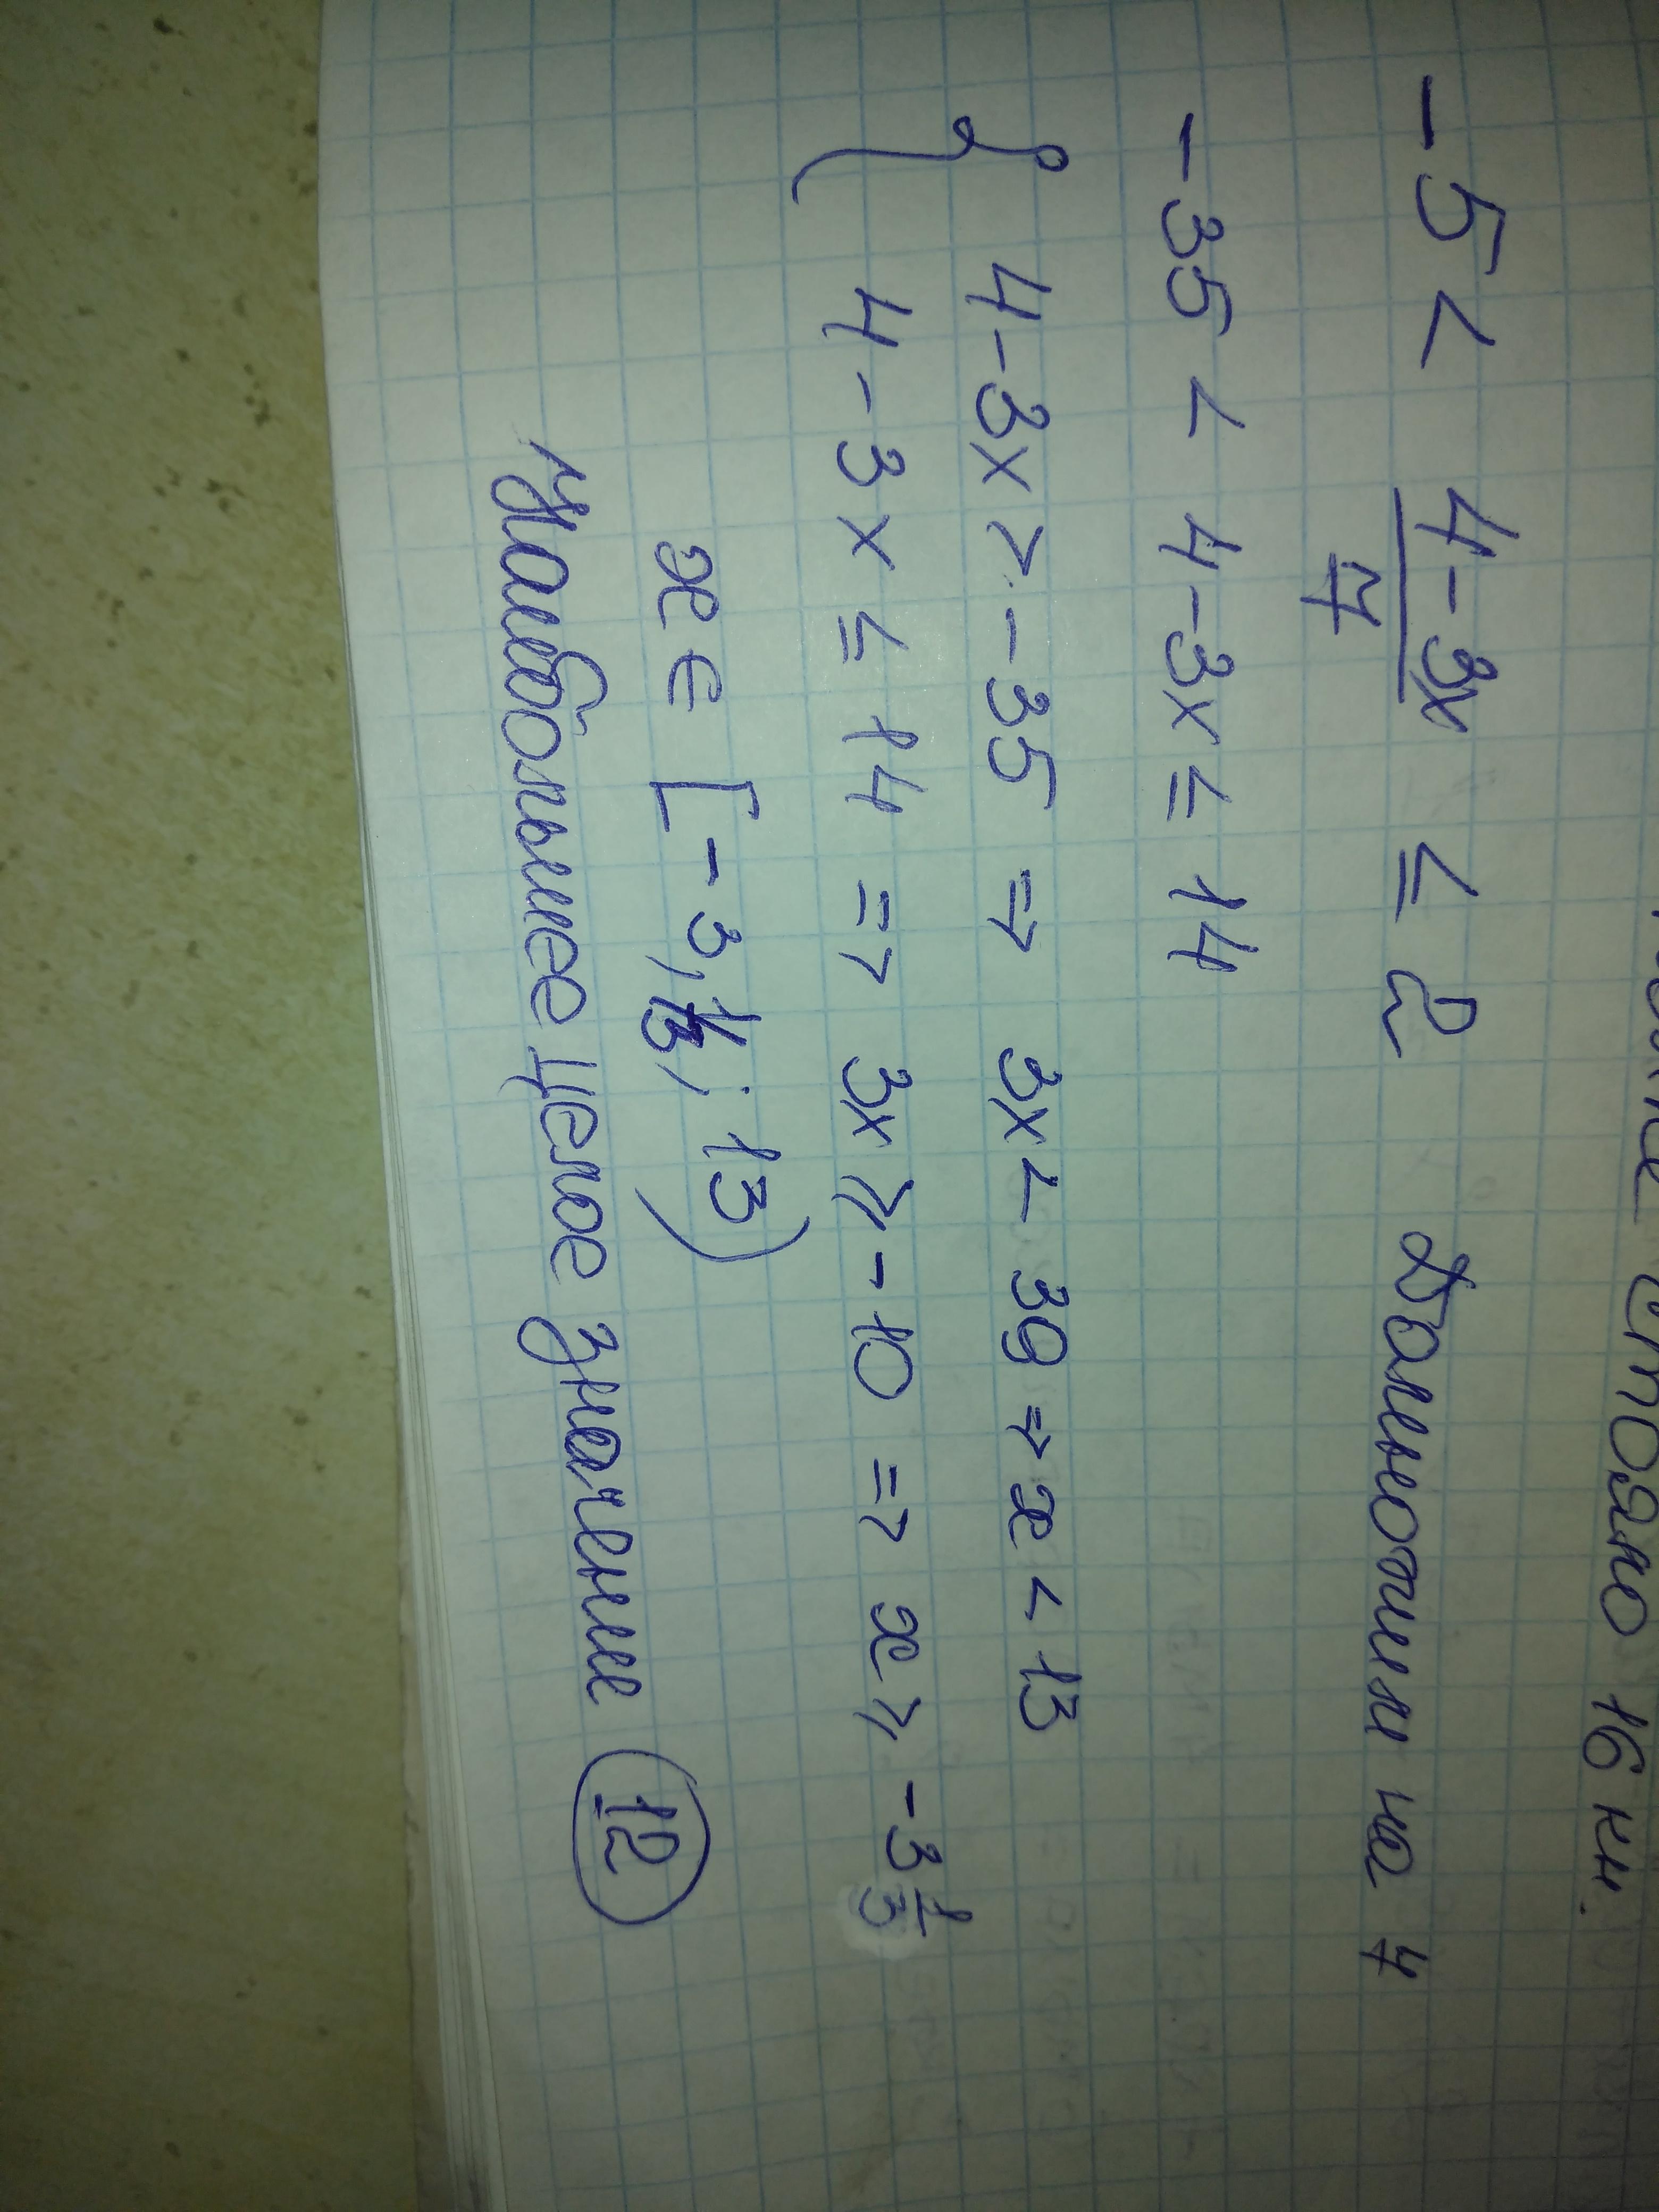 стояло 16 кн.
-5 < \frac{4-3x}{7} ≤ 2 Домножим на 7
-35 < 4-3x ≤ 14
{ 4-3x > -35 => 3x < 39 => x < 13
4-3x ≤ 14 => 3x ⩾ -10 => x ⩾ -3\frac{1}{3}
x ∈ [-3, 1/3; 13)
Наибольшее целое значение 12